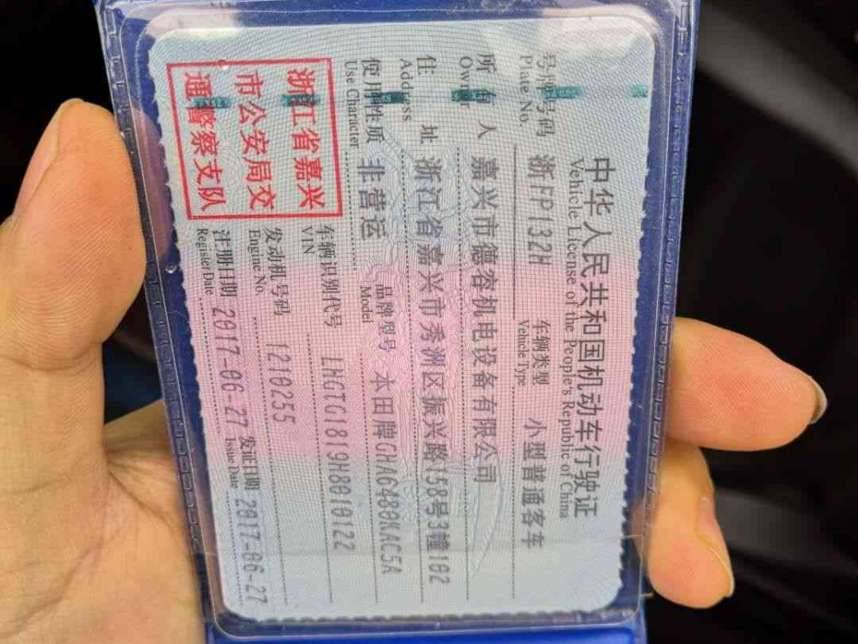 中华人民共和国机动车行驶证
Vehicle License of the People's Republic of China
号牌号码 浙FP132H 车辆类型 小型普通客车
Plate No. Vehicle Type
所有人 嘉兴市德容机电设备有限公司
Owner
住址 浙江省嘉兴市秀洲区振兴路158号3幢102
Address
使用性质 非营运 品牌型号 本田牌GHA6480KAC5A
Use Character Model
浙江省嘉兴
市公安局交
通警察支队
车辆识别代号 LHGTG1819H8010122
VIN
发动机号码 1210255
Engine No.
注册日期 2017-06-27 发证日期 2017-06-27
Register Date Issue Date